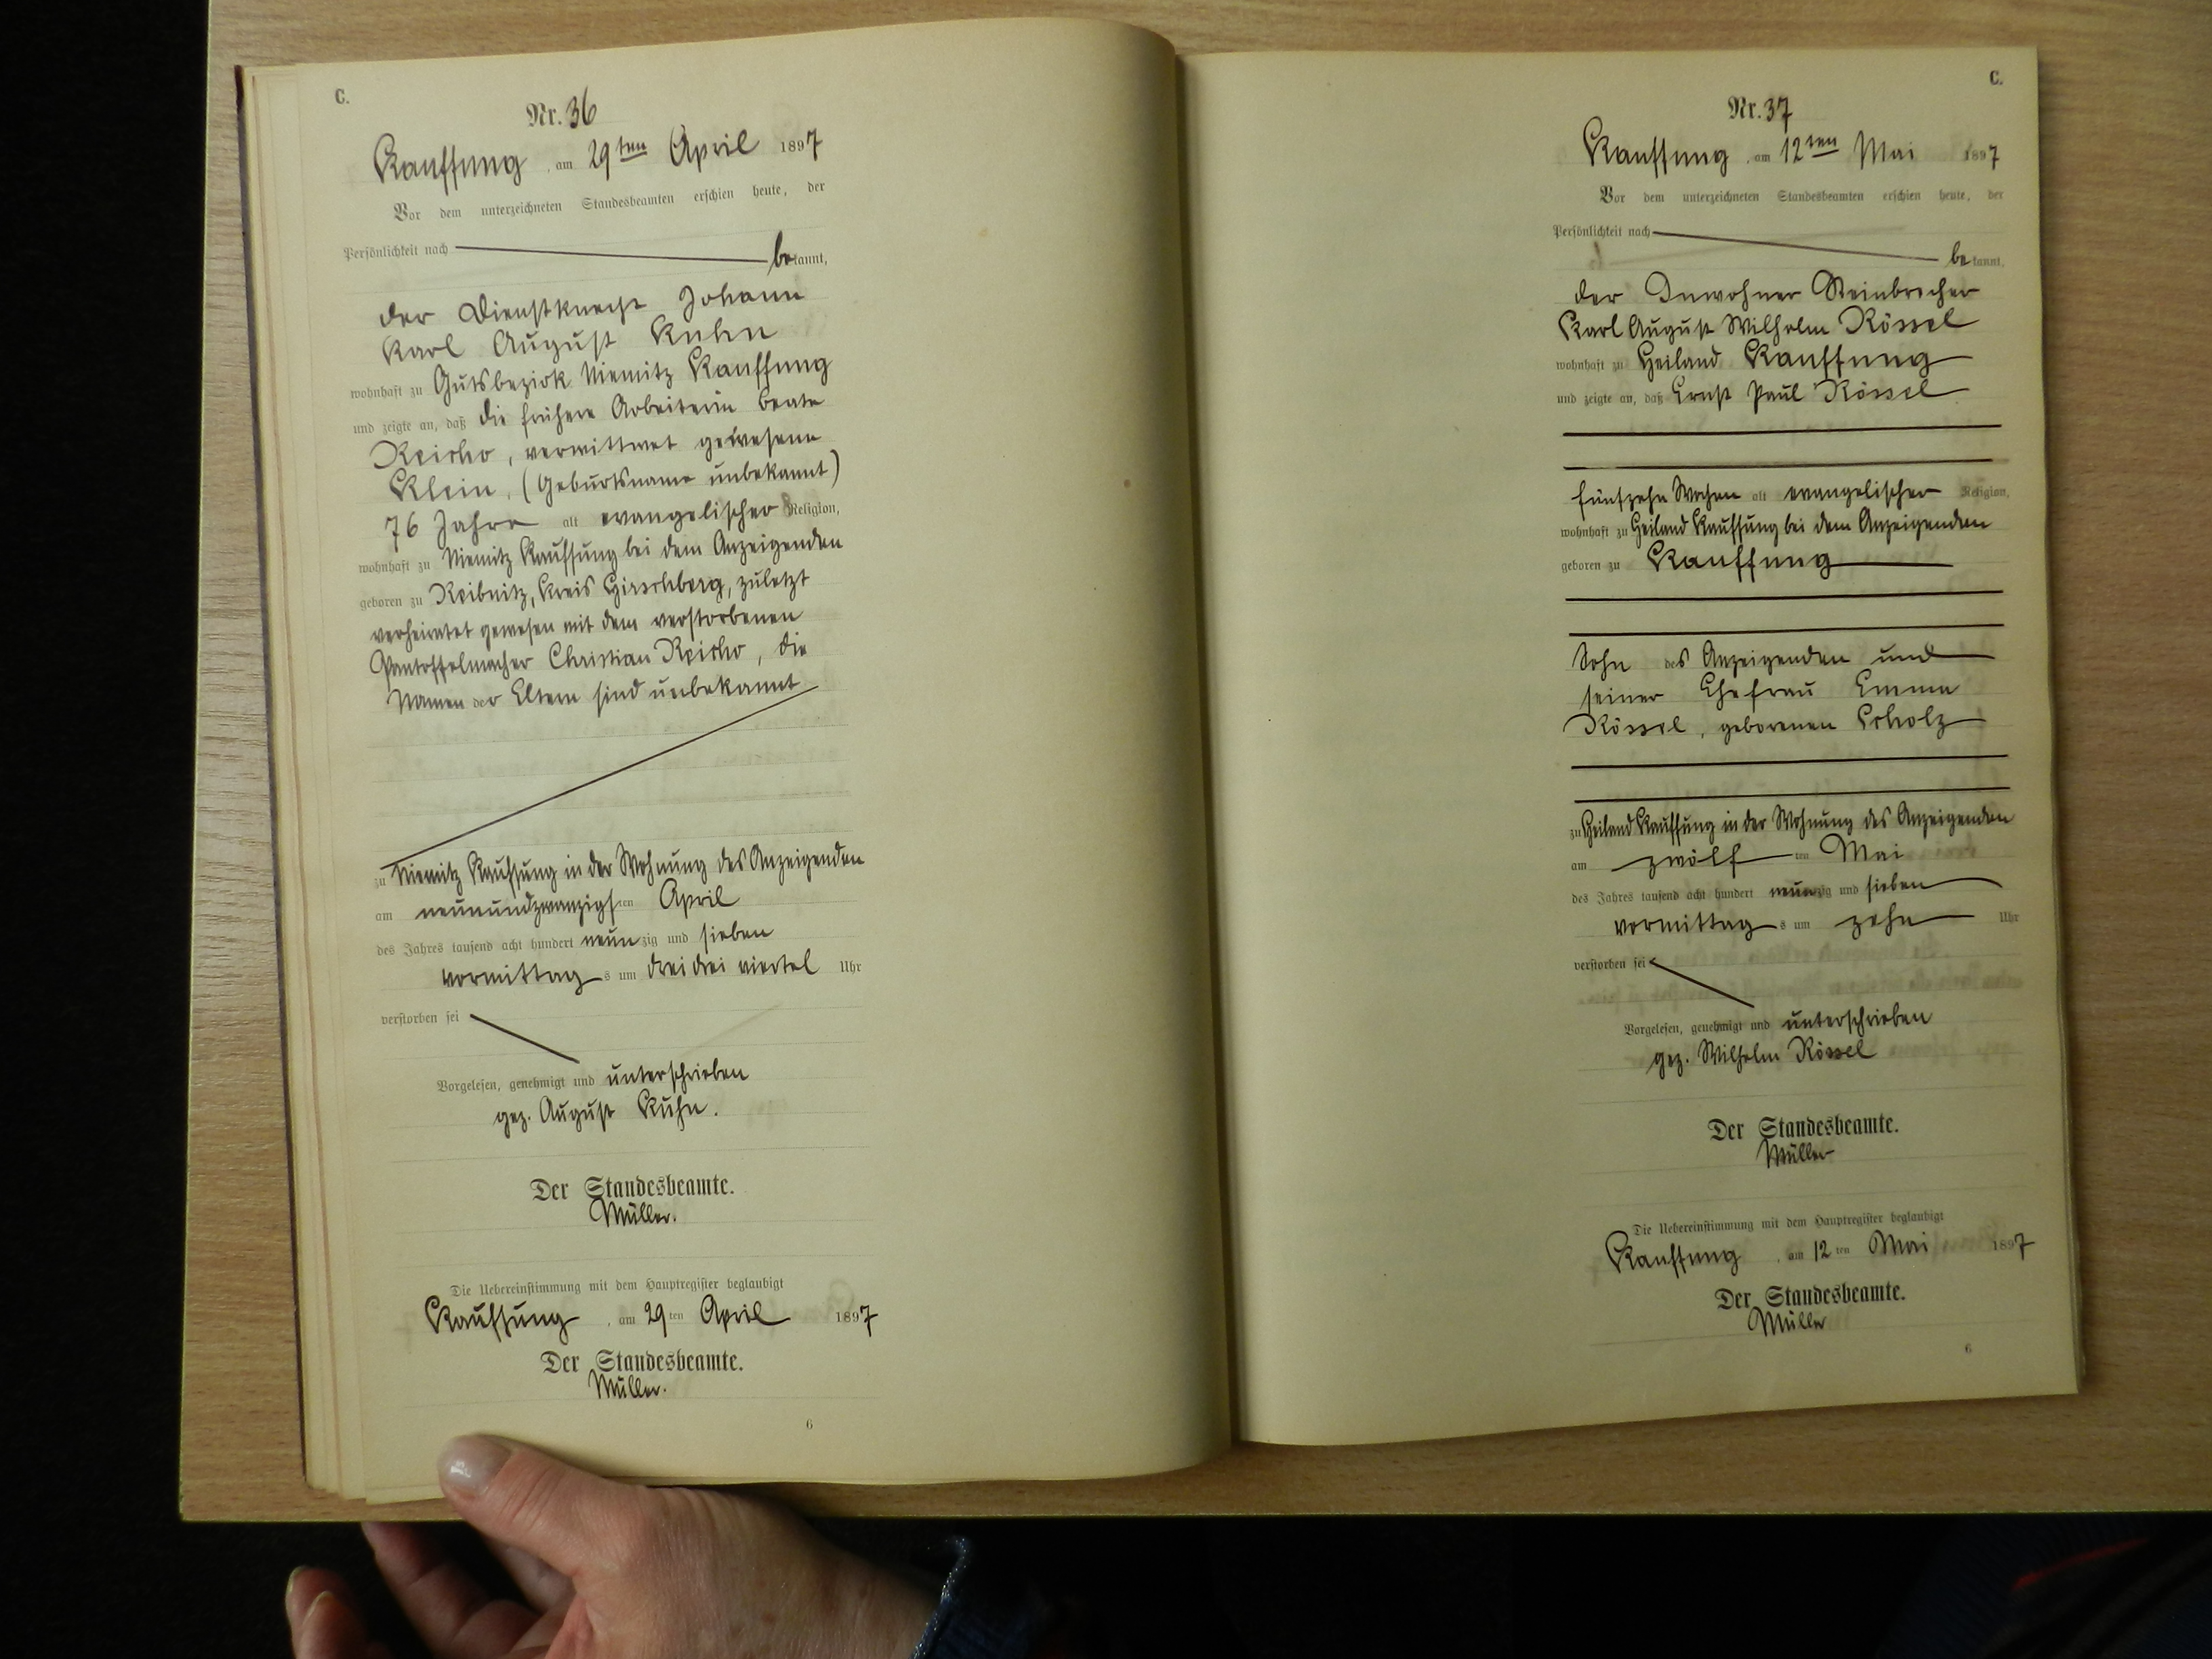 C.
Nr. 36
Kauffung, am 29ten April 1897
Vor dem unterzeichneten Standesbeamten erschien heute, der
Persönlichkeit nach
bekannt,
der Dienstknecht Johann
Karl August Kuhn
wohnhaft zu Gutsbezirk Niemitz Kauffung
und zeigte an, daß die frühere Arbeiterin Beate
Reicho, verwittwet gewesene
Klein, (Geburtsname unbekannt)
76 Jahre alt evangelischer Religion,
wohnhaft zu Niemitz Kauffung bei dem Anzeigenden
geboren zu Reibnitz, Kreis Hirschberg, zuletzt
verheiratet gewesen mit dem verstorbenen
Pantoffelmacher Christian Reicho, die
Namen der Eltern sind unbekannt
zu Niemitz Kauffung in der Wohnung des Anzeigenden
am neunundzwanzigsten April
des Jahres tausend acht hundert neunzig und sieben
vormittags um drei drei viertel Uhr
verstorben sei
Vorgelesen, genehmigt und unterschrieben
gez. August Kuhn.
Der Standesbeamte.
Müller.
Die Uebereinstimmung mit dem Hauptregister beglaubigt
Kauffung, am 29ten April 1897
Der Standesbeamte.
Müller.
6
C.
Nr. 37
Kauffung, am 12ten Mai 1897
Vor dem unterzeichneten Standesbeamten erschien heute, der
Persönlichkeit nach
bekannt,
der Inwohner Steinbrecher
Karl August Wilhelm Rössel
wohnhaft zu Heiland Kauffung
und zeigte an, daß Ernst Paul Rössel
fünfzehn Wochen alt evangelischer Religion,
wohnhaft zu Heiland Kauffung bei dem Anzeigenden
geboren zu Kauffung
Sohn des Anzeigenden und
seiner Ehefrau Emma
Rössel, geborenen Scholz
zu Heiland Kauffung in der Wohnung des Anzeigenden
am zwölften Mai
des Jahres tausend acht hundert neunzig und sieben
vormittags um zehn Uhr
verstorben sei
Vorgelesen, genehmigt und unterschrieben
gez. Wilhelm Rössel
Der Standesbeamte.
Müller
Die Uebereinstimmung mit dem Hauptregister beglaubigt
Kauffung, am 12ten Mai 1897
Der Standesbeamte.
Müller
6